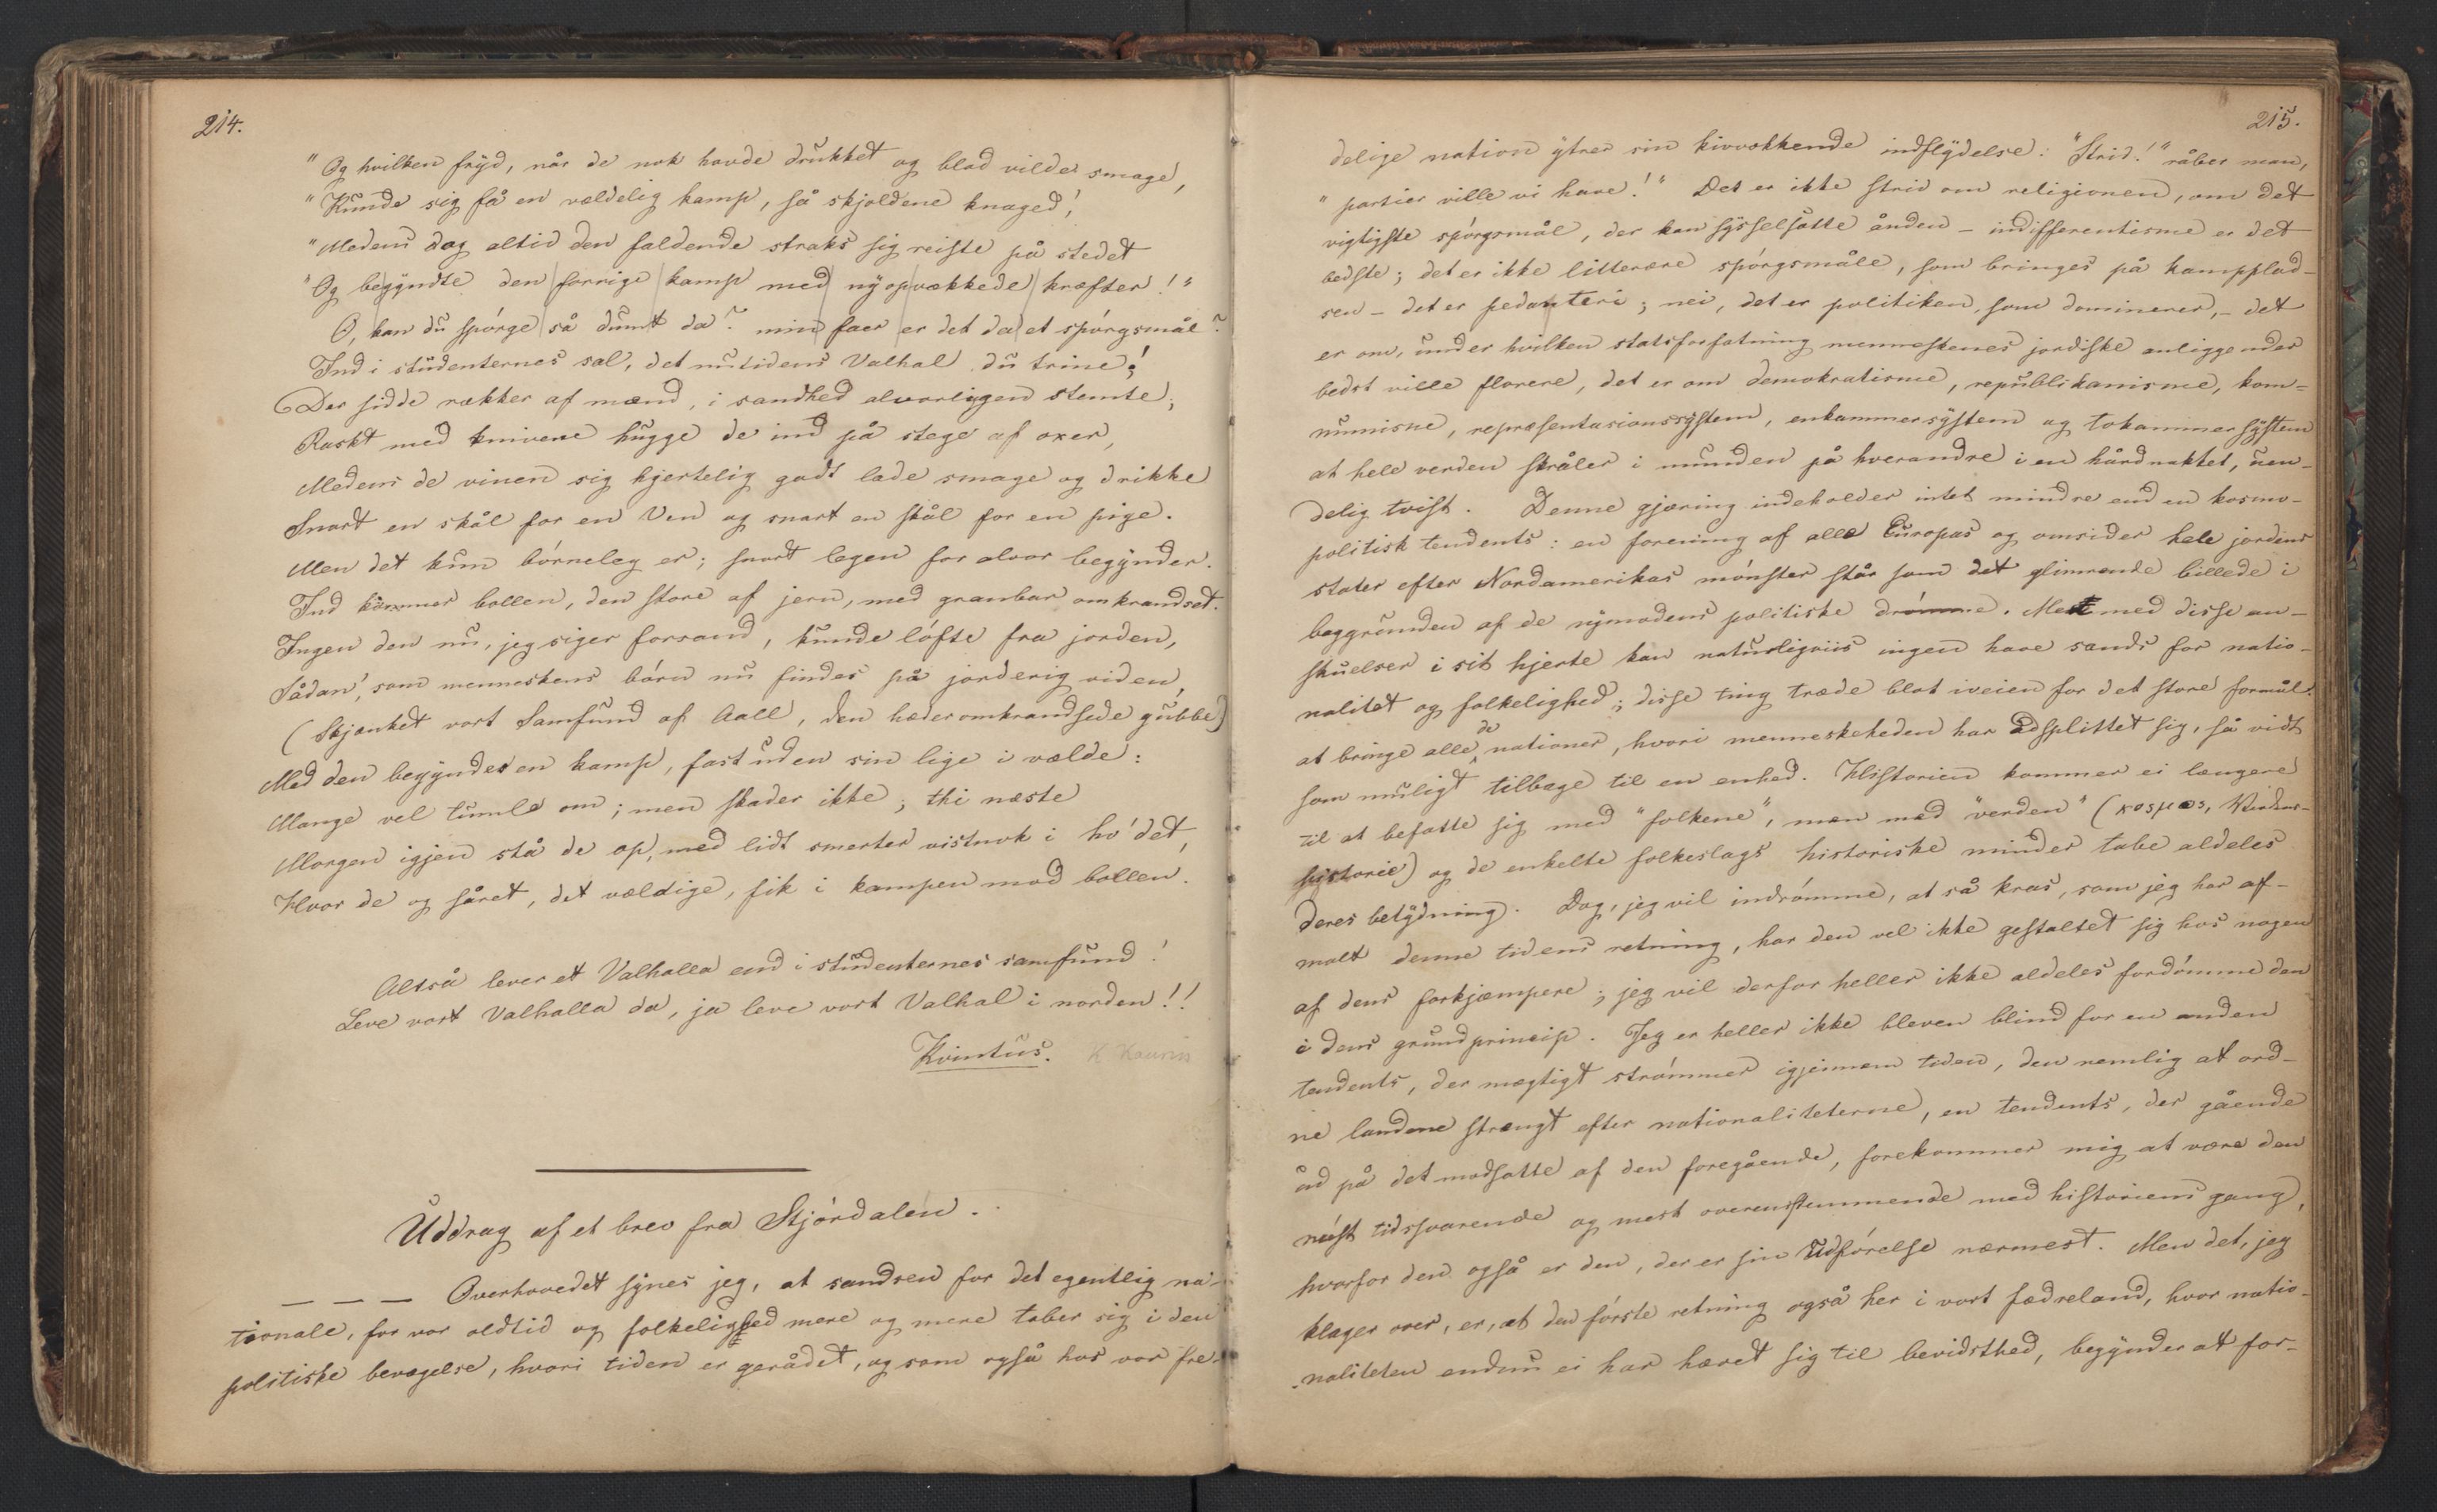 214.
"Og hvilken fryd, når de nok havde drukket og blod vilde smage,
"Kunde sig få en vældelig kamp, så skjoldene knaged!
"Medens dog altid den faldende straks sig reiste på stedet
"Og begyndte den forrige kamp med nyopvækkede kræfter!"
O, kan du spörge så dumt da? min faer er det da et spörgsmål?
Ind i studenternes sal, det nutidens Valhal du trine!
Der sidde rækker af mænd, i sandhed alvorligen stemte;
Raskt med knivene hugge de ind på stege af oxer,
Medens de vinen sig hjertelig godt lade smage og drikke
Snart en skål for en Ven og snart en skål for en pige.
Men det kun börneleg er; snart legen for alvor begynder.
Ind kommer bollen, den store af jern, med granbar omkrandset.
Ingen den nu, jeg siger forsand, kunde löfte fra jorden,
Sådan', som menneskens börn nu findes på jorderig viden,
(Skjænket vort Samfund af Aall, den hæderomkrandsede gubbe)
Med den begyndes en kamp, fast uden sin lige i vælde:
Mange vel tumle om; men skader ikke; thi næste
Morgen igjen stå de op, med lidt smerter vistnok i ho'det,
Hvor de og såret, det vældige, fik i kampen mod bollen.
Altså lever et Valhalla end i studenternes samfund!
Leve vort Valhalla da, ja leve vort Valhal i norden!!
Kvintus. K Kaurin
Uddrag af et brev fra Stjördalen.
— — — Overhovedet synes jeg, at sandsen for det egentlig na-
tionale, for vor oldtid og folkelighed mere og mere taber sig i den
politiske bevægelse, hvori tiden er gerådet, og som også hos vor fre-
215.
delige nation ytrer sin kivvækkende indflydelse: "Strid!" råber man,
"partier ville vi have!" Det er ikke strid om religionen, om det
vigtigste spörgsmål, der kan sysselsætte ånden – indifferentisme er det
bedste; det er ikke litterære spörgsmåle, som bringes på kampplad-
sen – det er pedanteri; nei, det er politiken, som dominerer, – det
er om, under hvilken statsforfatning menneskenes jordiske anliggender
bedst ville florere, det er om demokratisme, republikanisme, kom-
munisme, repræsentasionssystem, enkammersystem og tokammersystem
at hele verden skråler i munden på hverandre i en hårdnakket, uen-
delig tvist. Denne gjæring indeholder intet mindre end en kosmo-
politisk tendents: en forening af alle Europas og omsider hele jordens
stater efter Nordamerikas mönster står som det glimrende billede i
baggrunden af de nymodens politiske drömme. Men med disse an-
skuelser i sit hjerte kan naturligviis ingen have sands for natio-
nalitet og folkelighed; disse ting træde blot iveien for det store formål:
at bringe alle de nationer, hvori menneskeheden har adsplittet sig, så vidt
som muligt tilbage til en enhed. Historien kommer ei længere
til at befatte sig med "folkene", men med "verden" (κοσμος, Verdens-
historie) og de enkelte folkeslags historiske minder tabe aldeles
deres betydning. Dog, jeg vil indrömme, at så kras, som jeg har af-
malt denne tidens retning, har den vel ikke gestaltet sig hos nogen
af dens forkjæmpere; jeg vil derfor heller ikke aldeles fordömme den
i dens grundprincip. Jeg er heller ikke bleven blind for en anden
tendents, der mægtigt strömmer igjennem tiden, den nemlig at ord-
ne landene strængt efter nationaliteterne, en tendents, der gående
ud på det modsatte af den foregående, forekommer mig at være den
mest tidssvarende og mest overensstemmende med historiens gang,
hvorfor den også er den, der er sin udförelse nærmest. Men det, jeg
klager over, er, at den förste retning også her i vort fædreland, hvor natio-
naliteten endnu ei har hævet sig til bevidsthed, begynder at for-